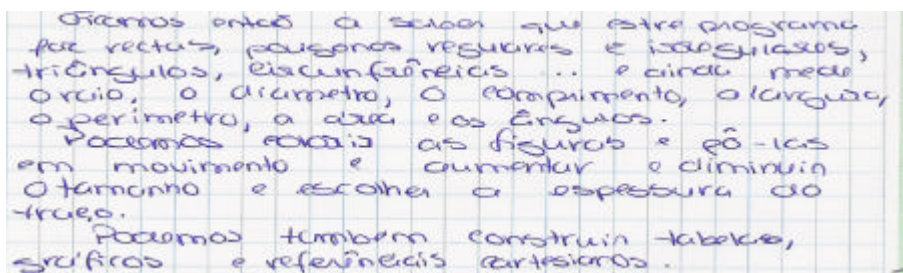 Ficamos então a saber que este programa
faz rectas, polígonos regulares e irregulares,
triângulos, circunferências ... e ainda mede
o raio, o diametro, o comprimento, a largura,
o perimetro, a área e os ângulos.
Podemos as figuras e pô-las
em movimento e aumentar e diminuir
o tamanho e escolher a espessura do
traço.
Podemos tambem construir tabelas,
gráficos e referênciais cartesianos.